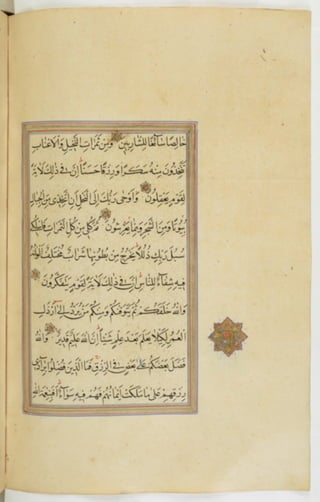 خَالِصًا سَائِغًا لِلشَّارِبِينَ وَمِنْ ثَمَرَاتِ النَّخِيلِ وَالْأَعْنَابِ
تَتَّخِذُونَ مِنْهُ سَكَرًا وَرِزْقًا حَسَنًا إِنَّ فِي ذَلِكَ لَآيَةً
لِقَوْمٍ يَعْقِلُونَ وَأَوْحَى رَبُّكَ إِلَى النَّحْلِ أَنِ اتَّخِذِي مِنَ الْجِبَالِ
بُيُوتًا وَمِنَ الشَّجَرِ وَمِمَّا يَعْرِشُونَ ثُمَّ كُلِي مِنْ كُلِّ الثَّمَرَاتِ فَاسْلُكِي
سُبُلَ رَبِّكِ ذُلُلًا يَخْرُجُ مِنْ بُطُونِهَا شَرَابٌ مُخْتَلِفٌ أَلْوَانُهُ
فِيهِ شِفَاءٌ لِلنَّاسِ إِنَّ فِي ذَلِكَ لَآيَةً لِقَوْمٍ يَتَفَكَّرُونَ
وَاللَّهُ خَلَقَكُمْ ثُمَّ يَتَوَفَّاكُمْ وَمِنْكُمْ مَنْ يُرَدُّ إِلَى أَرْذَلِ
الْعُمُرِ لِكَيْ لَا يَعْلَمَ بَعْدَ عِلْمٍ شَيْئًا إِنَّ اللَّهَ عَلِيمٌ قَدِيرٌ وَاللَّهُ
فَضَّلَ بَعْضَكُمْ عَلَى بَعْضٍ فِي الرِّزْقِ فَمَا الَّذِينَ فُضِّلُوا بِرَادِّي
رِزْقِهِمْ عَلَى مَا مَلَكَتْ أَيْمَانُهُمْ فَهُمْ فِيهِ سَوَاءٌ أَفَبِنِعْمَةِ اللَّهِ